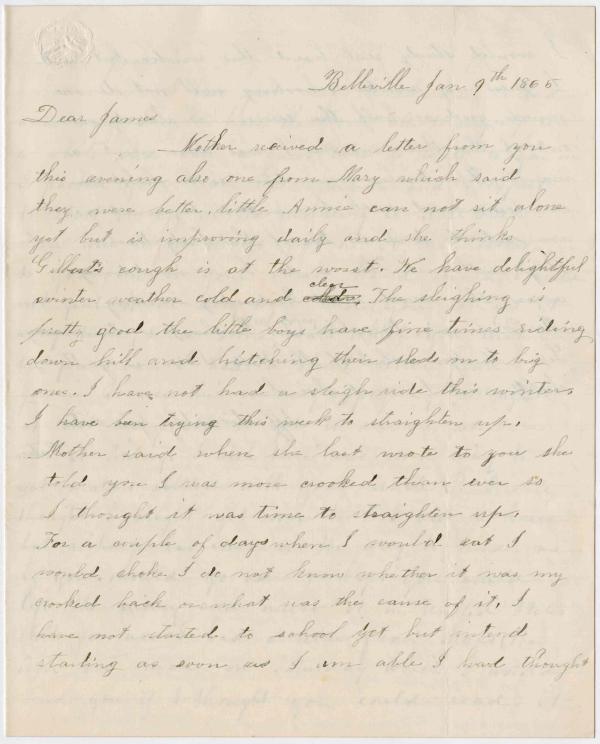 Belleville Jan 9th 1865
Dear James
Mother recived a letter from you
this evening also one from Mary which said
they were better. little Annie can not sit alone
yet but is improving daily and she thinks
Gilbert's cough is at the worst. We have delightful
winter weather cold and clear. The sleighing is
pretty good the little boys have fine times riding
down hill and hitching their sleds on to big
ones. I have not had a sleigh ride this winter.
I have been trying this week to straighten up.
Mother said when she last wrote to you she
told you I was more crooked than ever so
I thought it was time to straighten up.
For a couple of days when I would eat I
would choke I do not know whether it was my
crooked back or what was the cause of it. I
have not started to school yet but intend
starting as soon as I am able I had thought